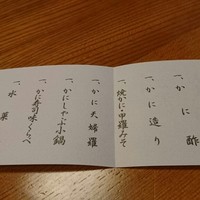 一、かに酢
一、かに造り
一、焼かに・甲羅みそ
一、かに天婦羅
一、かにしゃぶ小鍋
一、かに寿司味くらべ
一、水菓